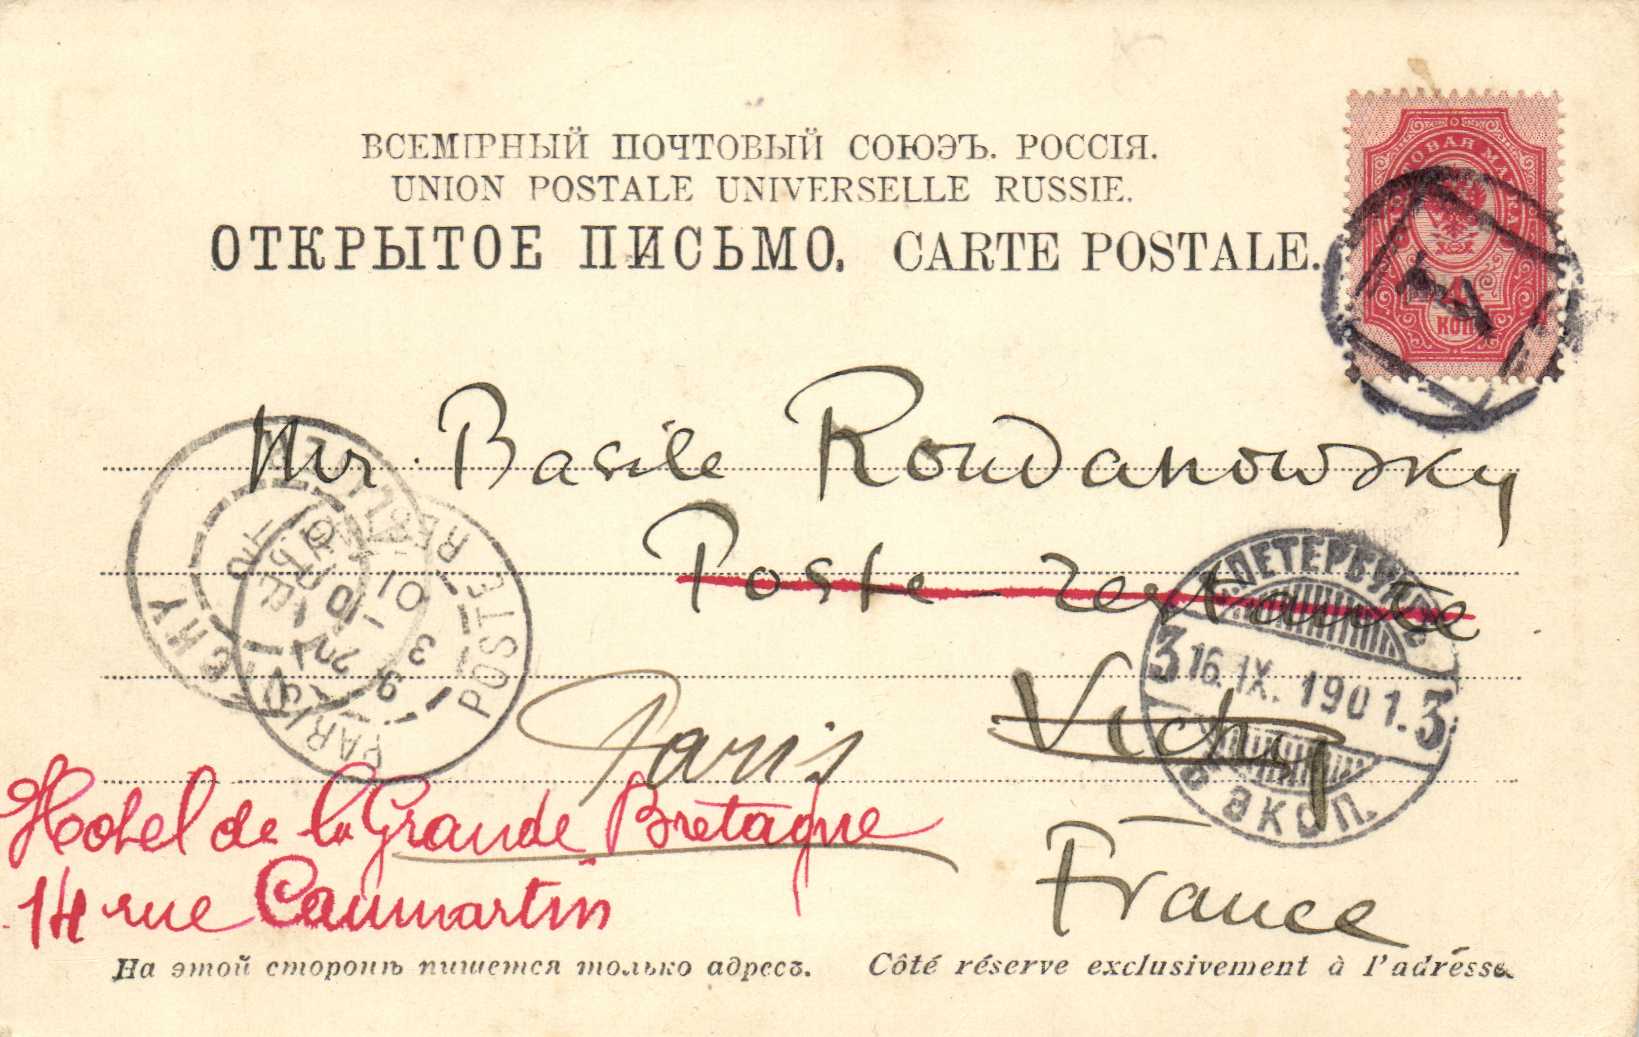 ВСЕМІРНЫЙ ПОЧТОВЫЙ СОЮЭЪ. РОССІЯ.
UNION POSTALE UNIVERSELLE RUSSIE.
ОТКРЫТОЕ ПИСЬМО. CARTE POSTALE.
КОП
Mr. Basile Roudanowsky
Poste-restante
Vichy
Paris
France
Hotel de la Grande Bretagne
14 rue Caumartin
С.ПЕТЕРБУРГ
3 16.IX.1901. 3
9 ЭКСП.
VICHY
PARIS
POSTE RESTANTE
На этой сторонѣ пишется только адресъ. Côté réserve exclusivement à l'adrésse.